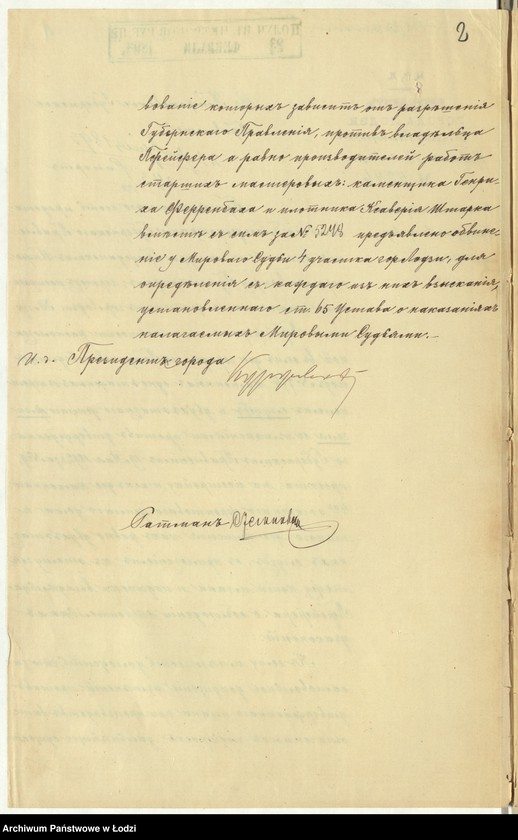 2
вованіе которыхъ зависитъ отъ разрѣшенія
Губернскаго Правленія, противъ владѣльца
а равно производителей работъ
старшихъ мастеровыхъ: каменщика Генри-
ха Ферренбаха и плотника Ксаверія Штарка
вмѣстѣ съ симъ за № 5248 предъявлено обвине-
ніе у Мироваго Судьи 4 участка гор. Лодзи, для
опредѣленія съ каждаго изъ нихъ взысканія,
установленнаго ст. 65 Устава о наказаніяхъ
налагаемыхъ Мировыми Судьями.-
И. д. Президентъ города
Ратманъ
Archiwum Państwowe w Łodzi